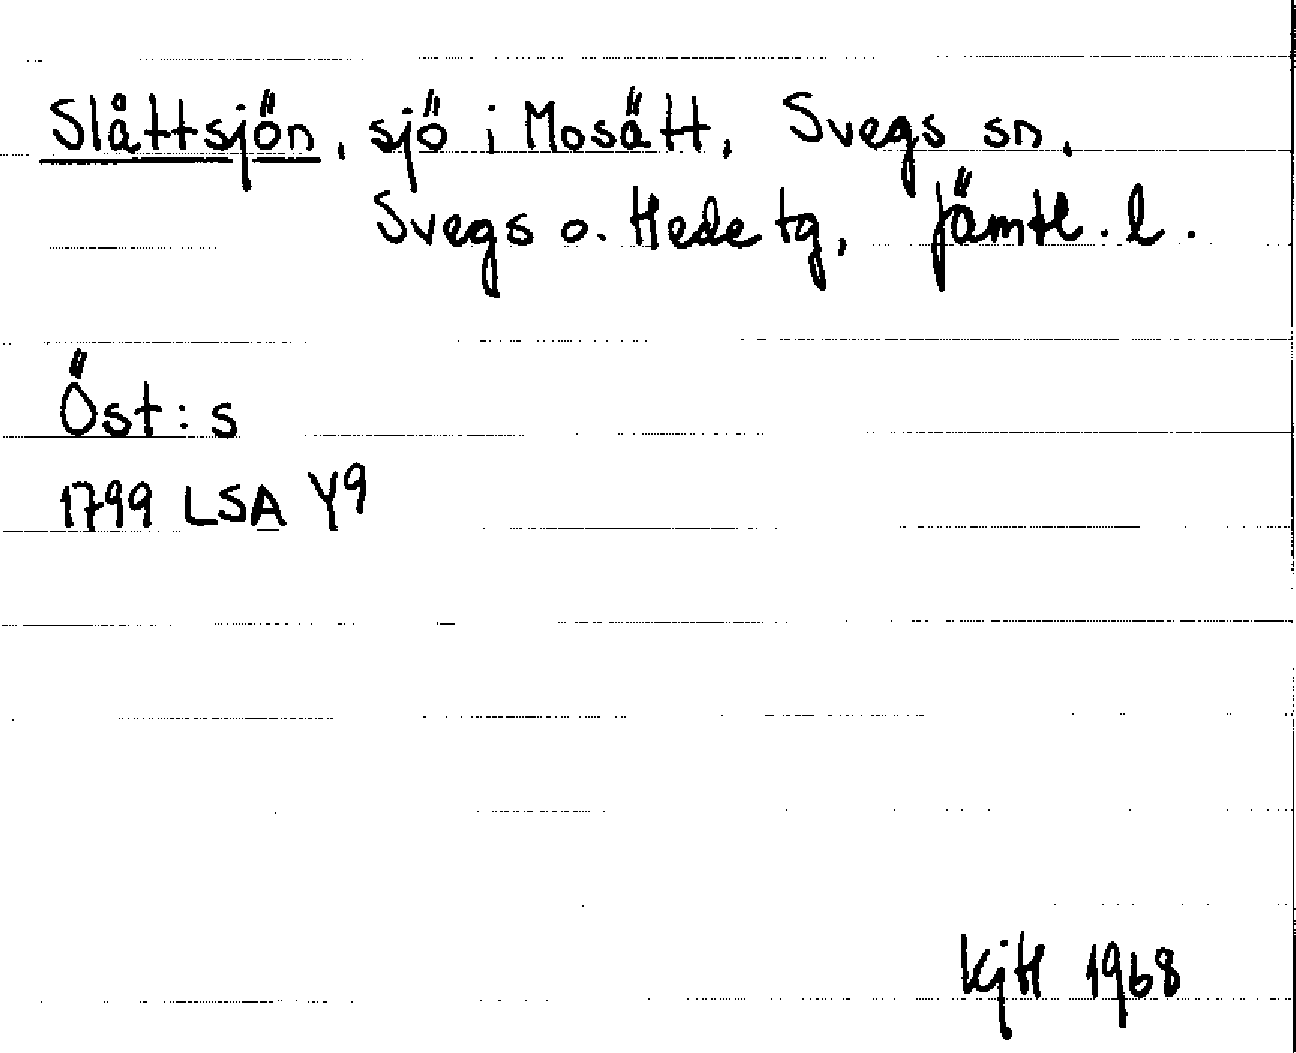 Slåttsjön, sjö i Mosätt, Svegs sn,
Svegs o. Hede tg, Jämtl. l.
Öst: s
1799 LSA Y9
KjH 1968